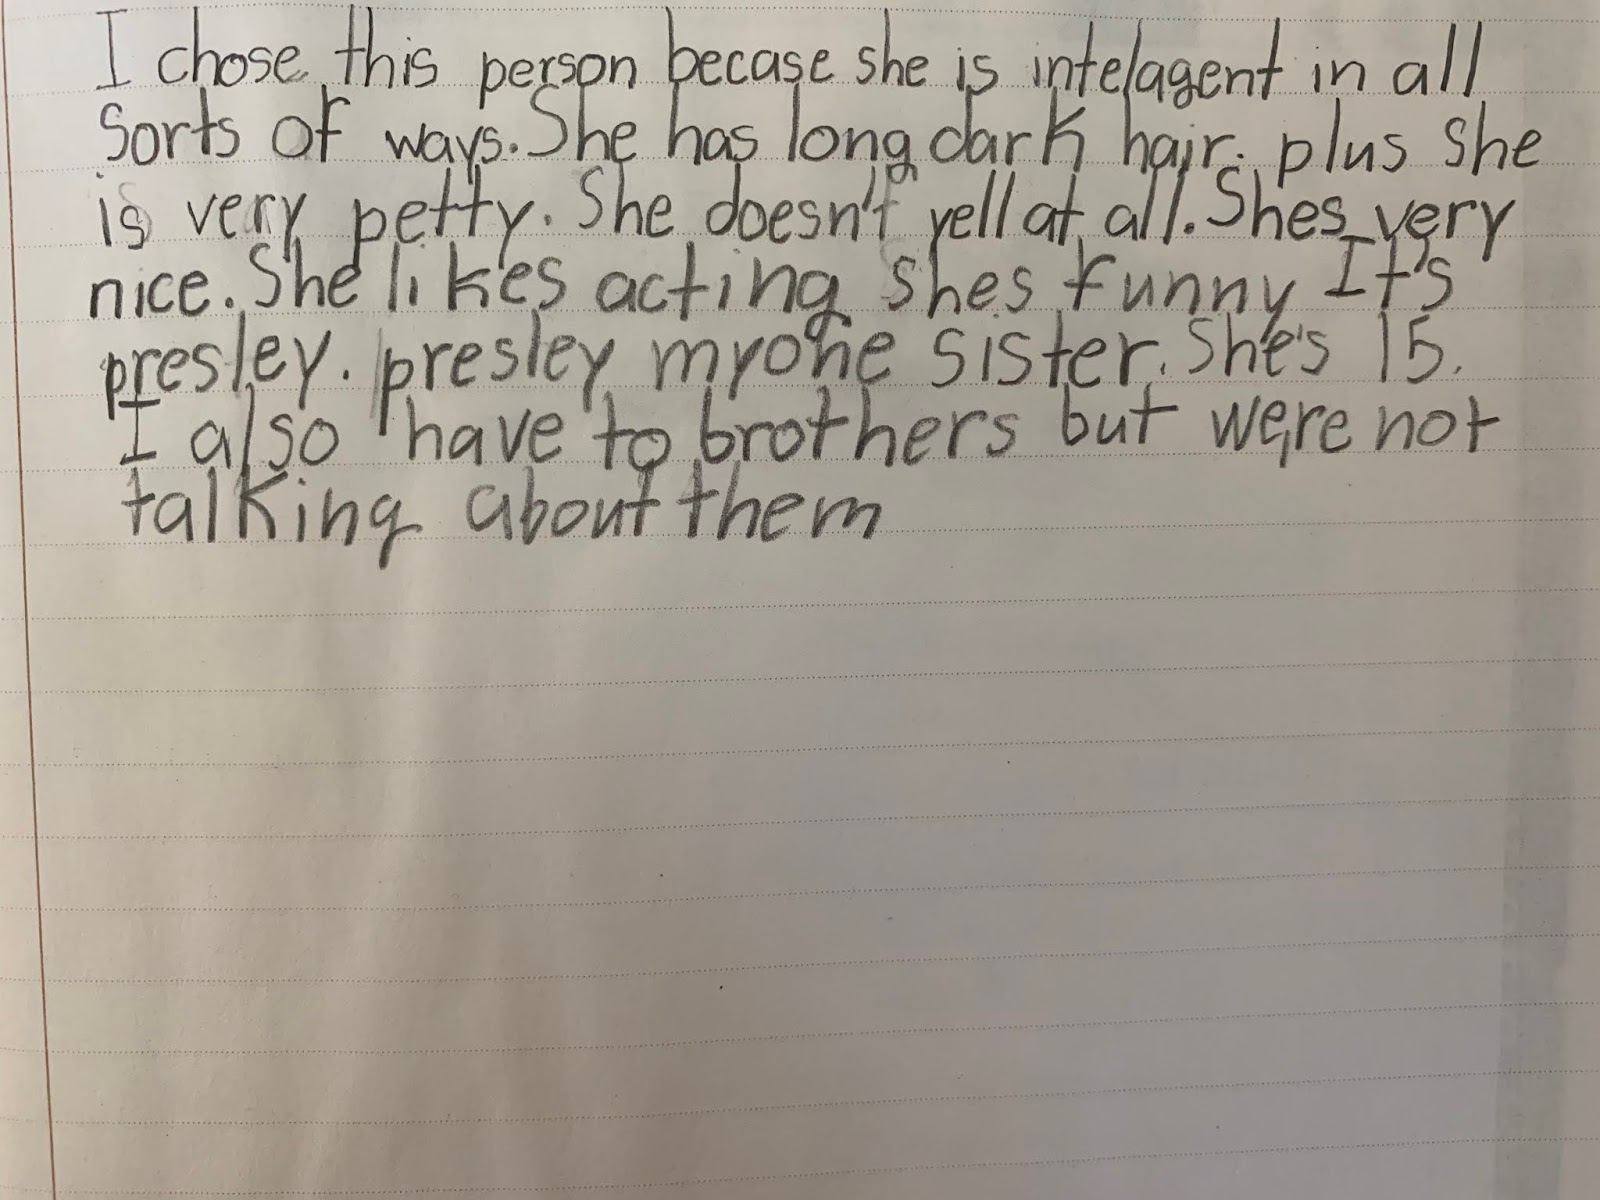 I chose this person becase she is intelagent in all
Sorts of ways. She has long dark hair. plus She
is very petty. She doesn't yell at all. Shes very
nice. She likes acting shes funny It's
presley. presley my one sister. She's 15.
I also have to brothers but we,re not
talking about them